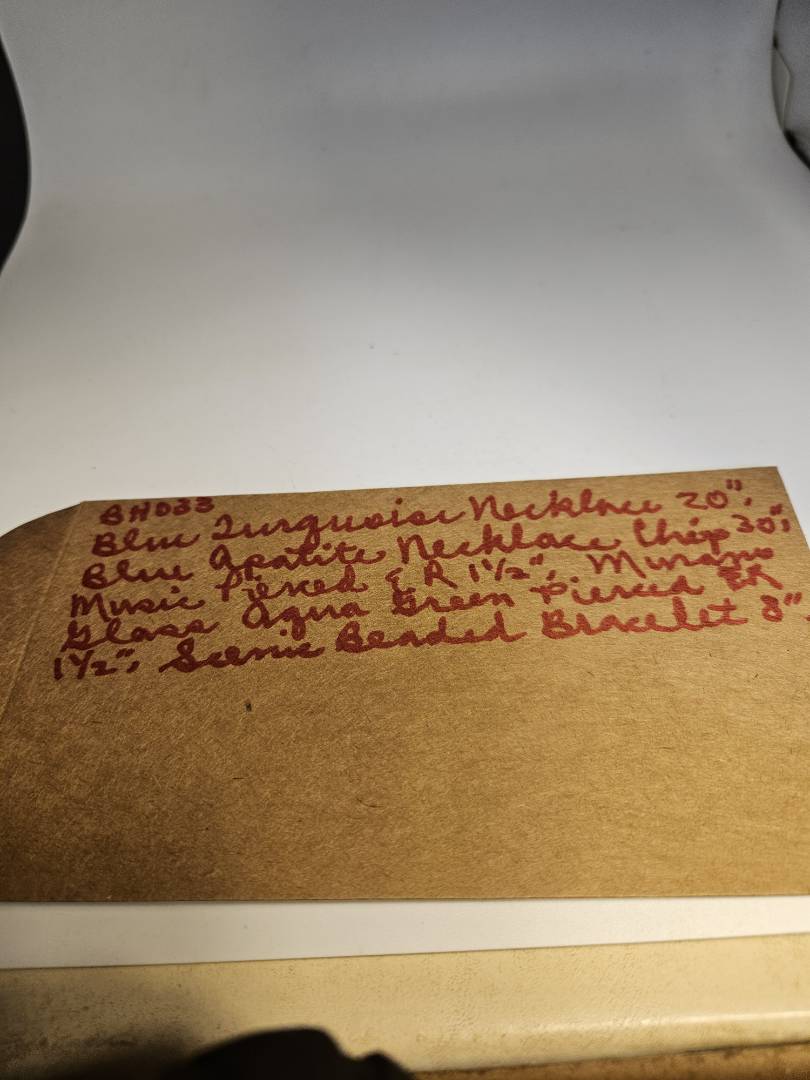 BH033
Blue Turquoise Necklace 20",
Blue Apatite Necklace Chip 30",
Music Pierced ER 1½", Murano
Glass Aqua Green Pierced ER
1½", Scenic Beaded Bracelet 8".